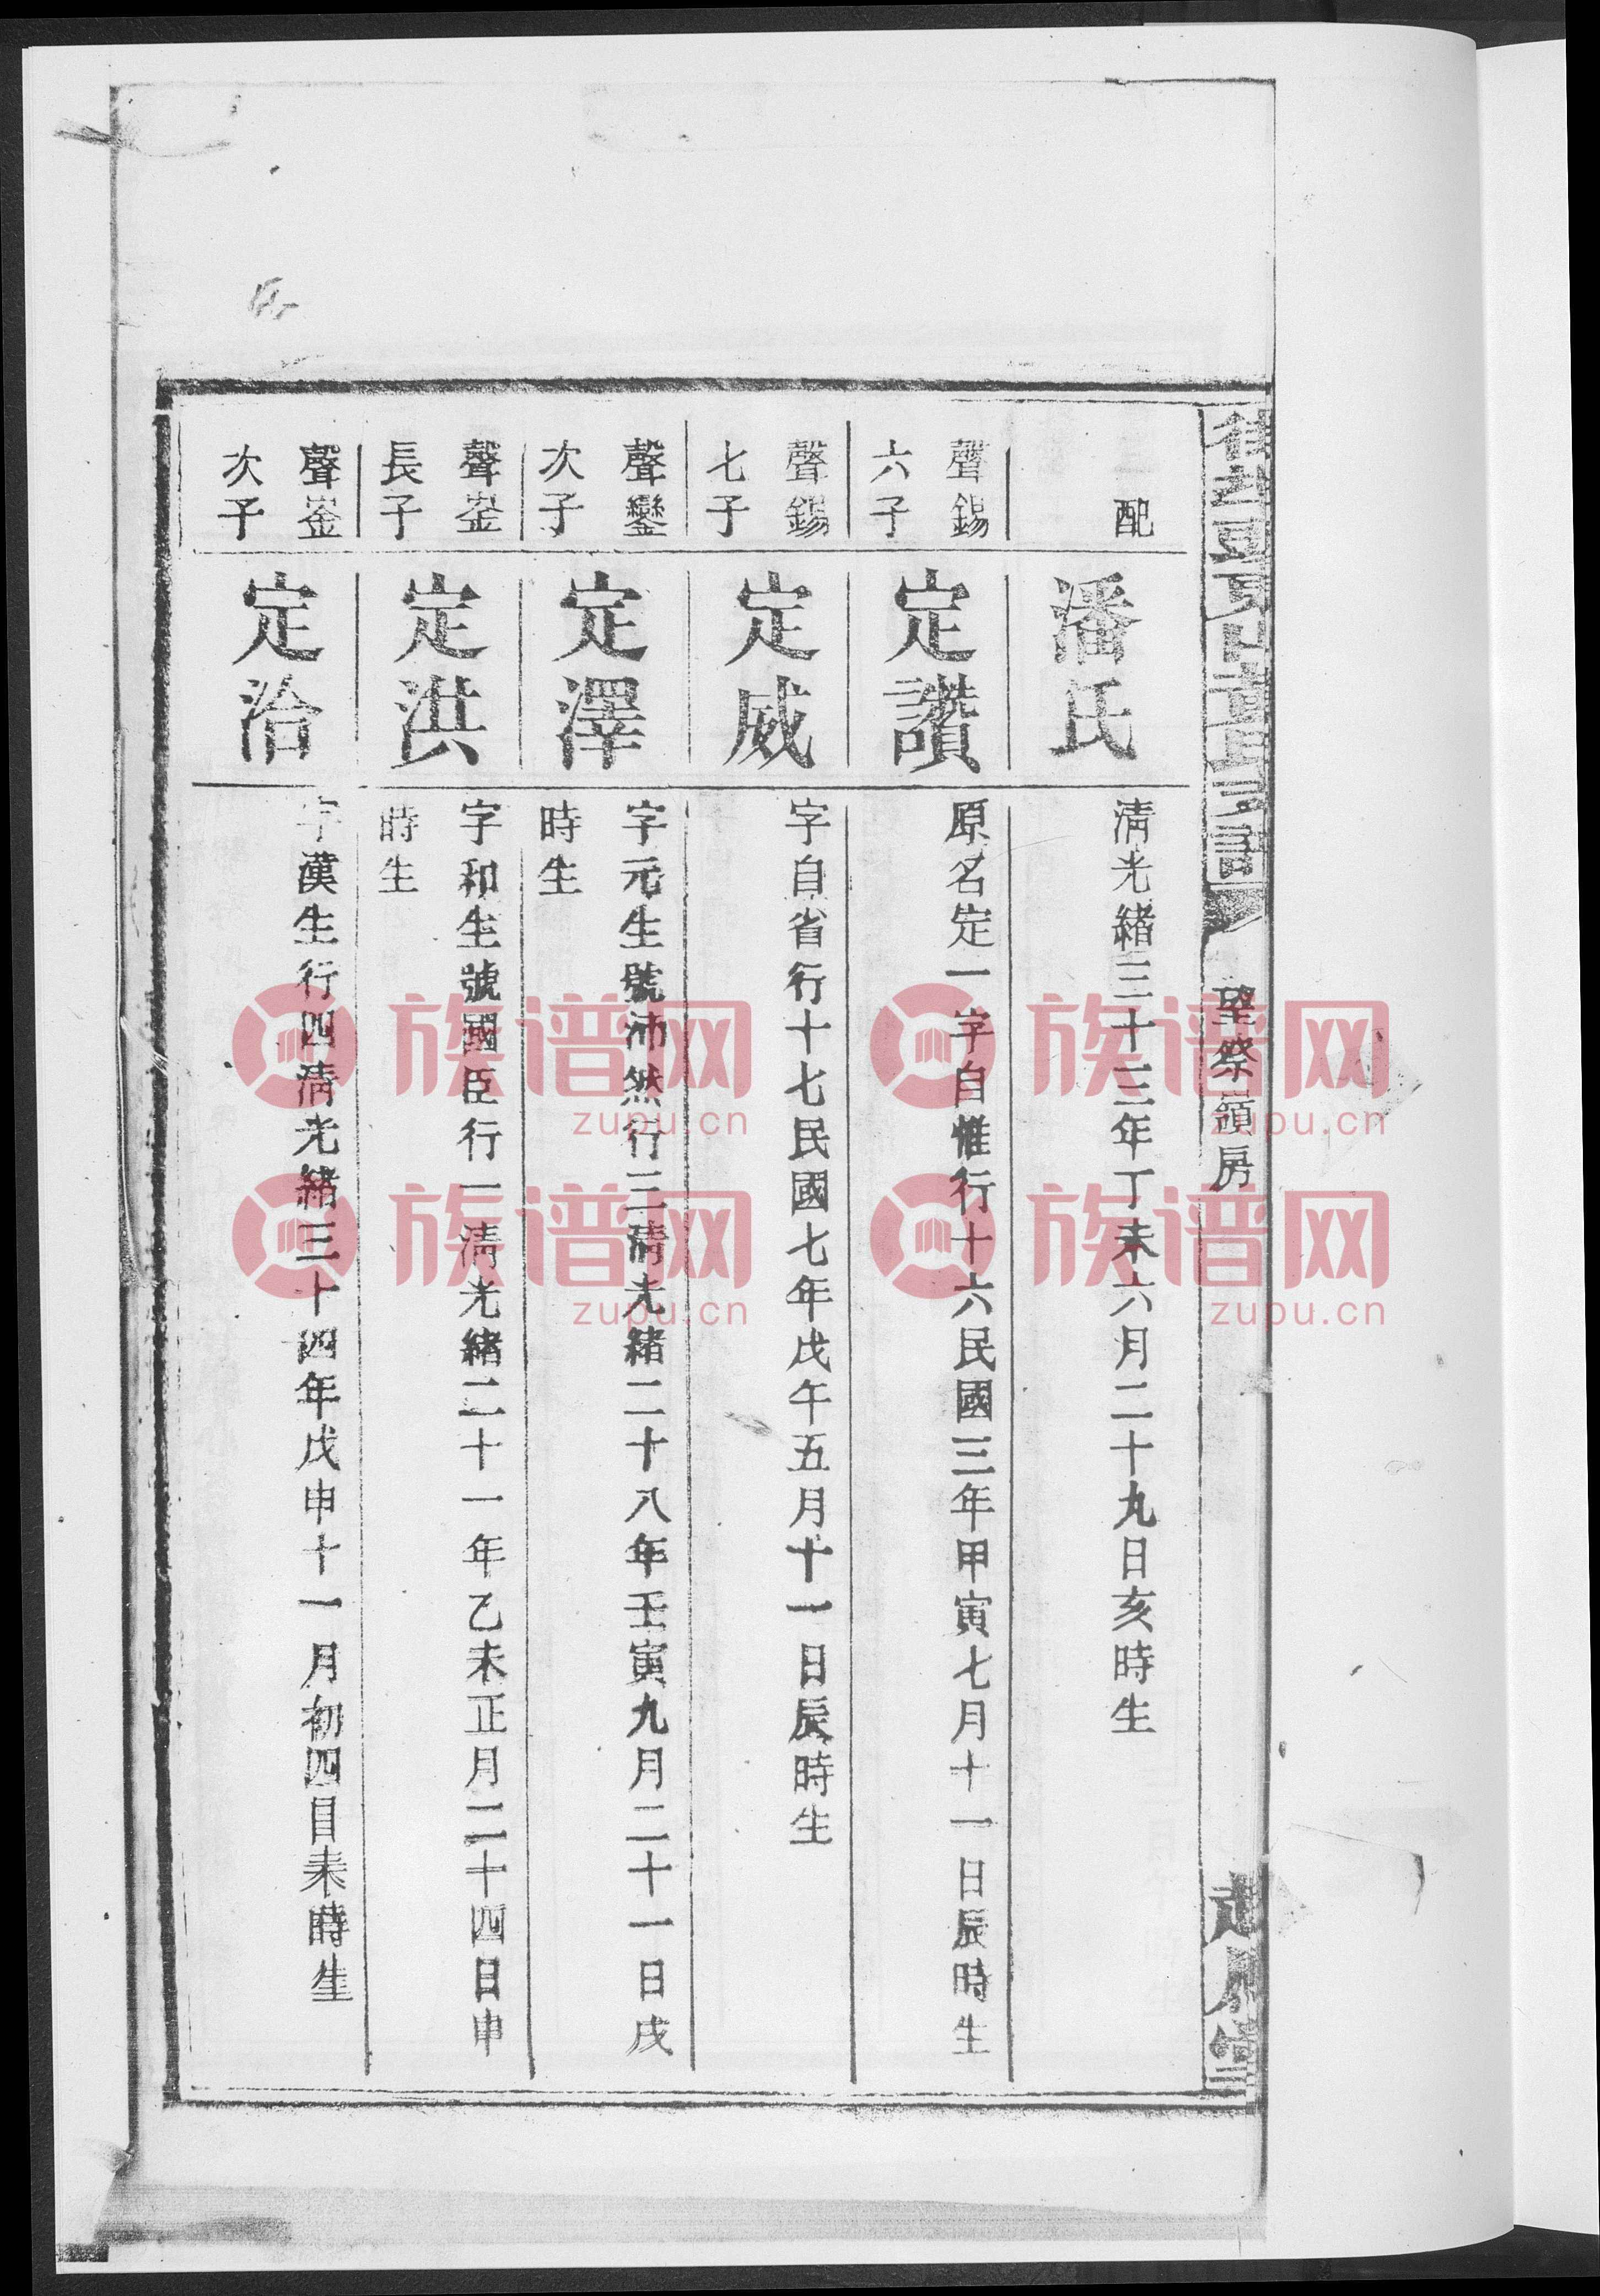 望祭嶺房
配
潘氏
清光緒三十三年丁未六月二十九日亥時生
聲錫
六子
定讚
原名定一字自惟行十六民國三年甲寅七月十一日辰時生
聲錫
七子
定威
字自省行十七民國七年戊午五月十一日辰時生
聲鑾
次子
定澤
字元生號沛然行三清光緒二十八年壬寅九月二十一日戌
時生
聲崟
長子
定洪
字和生號國臣行一清光緒二十一年乙未正月二十四日申
時生
聲崟
次子
定洽
字漢生行四清光緒三十四年戊申十一月初四日未時生
族谱网
zupu.cn
族谱网
zupu.cn
族谱网
zupu.cn
族谱网
zupu.cn